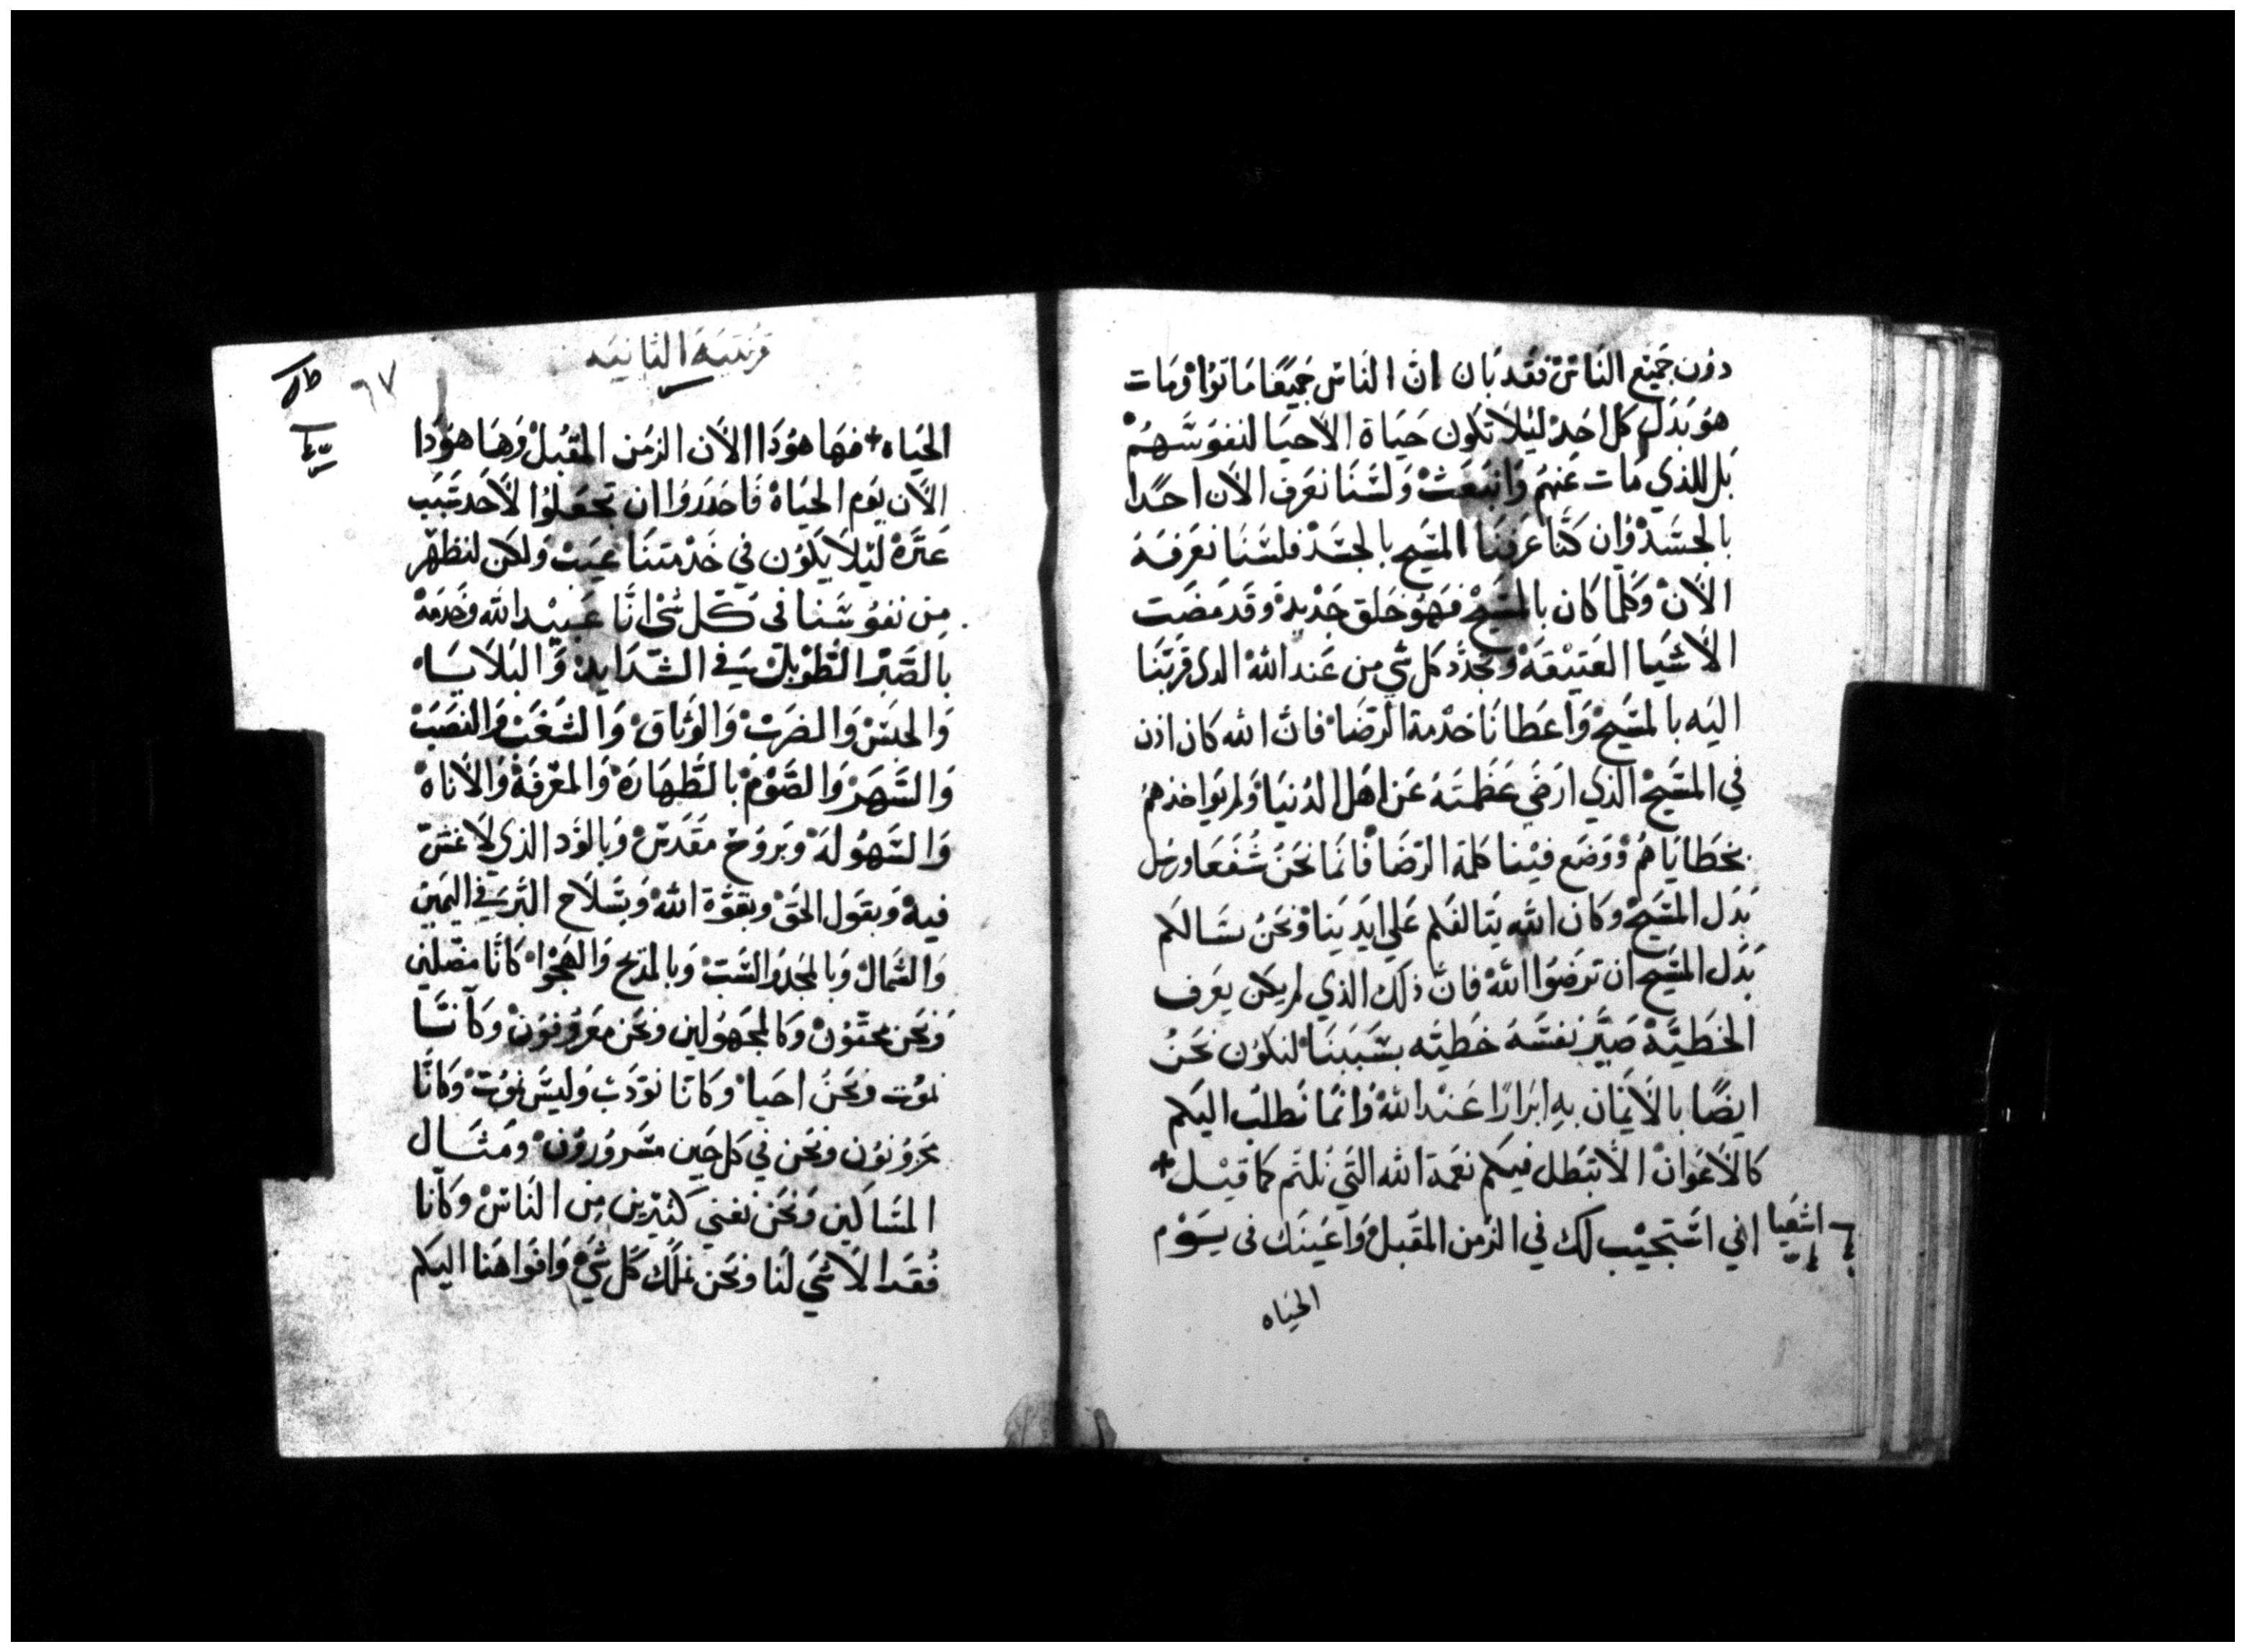 دون جميع الناس فقد بان ان الناس جميعا ماتوا ومات
هو بدل كل احد ليلا تكون حياة الاحيا لنفوسهم
بل للذي مات عنهم وانبعث ولسنا نعرف الان احدا
بالجسد وان كنا عرفنا المسيح بالجسد فلسنا نعرفه
الان وكلما كان بالمسيح فهو خلق جديد وقد مضت
الاشيا العتيقة وتجدد كل شي من عند الله الدى قربنا
اليه بالمسيح واعطانا خدمة الرضا فان الله كان اذن
في المسيح الذي ارضي عظمته عن اهل الدنيا ولم يواخذهم
بخطاياهم ووضع فينا كلمة الرضا فانما نحن شفعا ورسل
بدل المسيح وكان الله يتالفكم علي ايدينا ونحن نسالكم
بدل المسيح ان ترضوا الله فان ذلك الذي لم يكن يعرف
الخطية صير نفسه خطيه بسببنا لنكون نحن
ايضا بالايمان به ابرارا عند الله وانما نطلب اليكم
كالاعوان الا تبطل فيكم نعمة الله التي نلتم كما قيل +
اشعيا
اني استجيب لك في الزمن المقبل واعينك فى يوم
الحياه
قرنتيه الثانيه
٦٧
الحياه + فها هودا الان الزمن المقبل وها هودا
الان يوم الحياة فاحدروا ان تجعلوا لاحد سبب
عترة ليلا يكون في خدمتنا عيب ولكن لنظهر
من نفوسنا في كل شى انا عبيد الله وخدمه
بالصبر الطويل في الشدايد والبلايا
والحبس والضرب والوثاق والشغب والنصب
والسهر والصوم بالطهارة والمعرفة والاناة
والسهولة وبروح مقدس وبالود الذي لا غش
فيه وبقول الحق وبقوة الله وبسلاح البر في اليمين
والشمال وبالمجد والسب وبالمديح والهجوا كانا مضلين
ونحن محقون وكالمجهولين ونحن معروفون وكاننا
نموت ونحن احيا وكانا نودب وليس نموت وكانا
محزونون ونحن في كل حين مسرورون ومثال
المساكين ونحن نغني كثيرين من الناس وكانا
فقدا لا شي لنا ونحن نملك كل شي وافواهنا اليكم